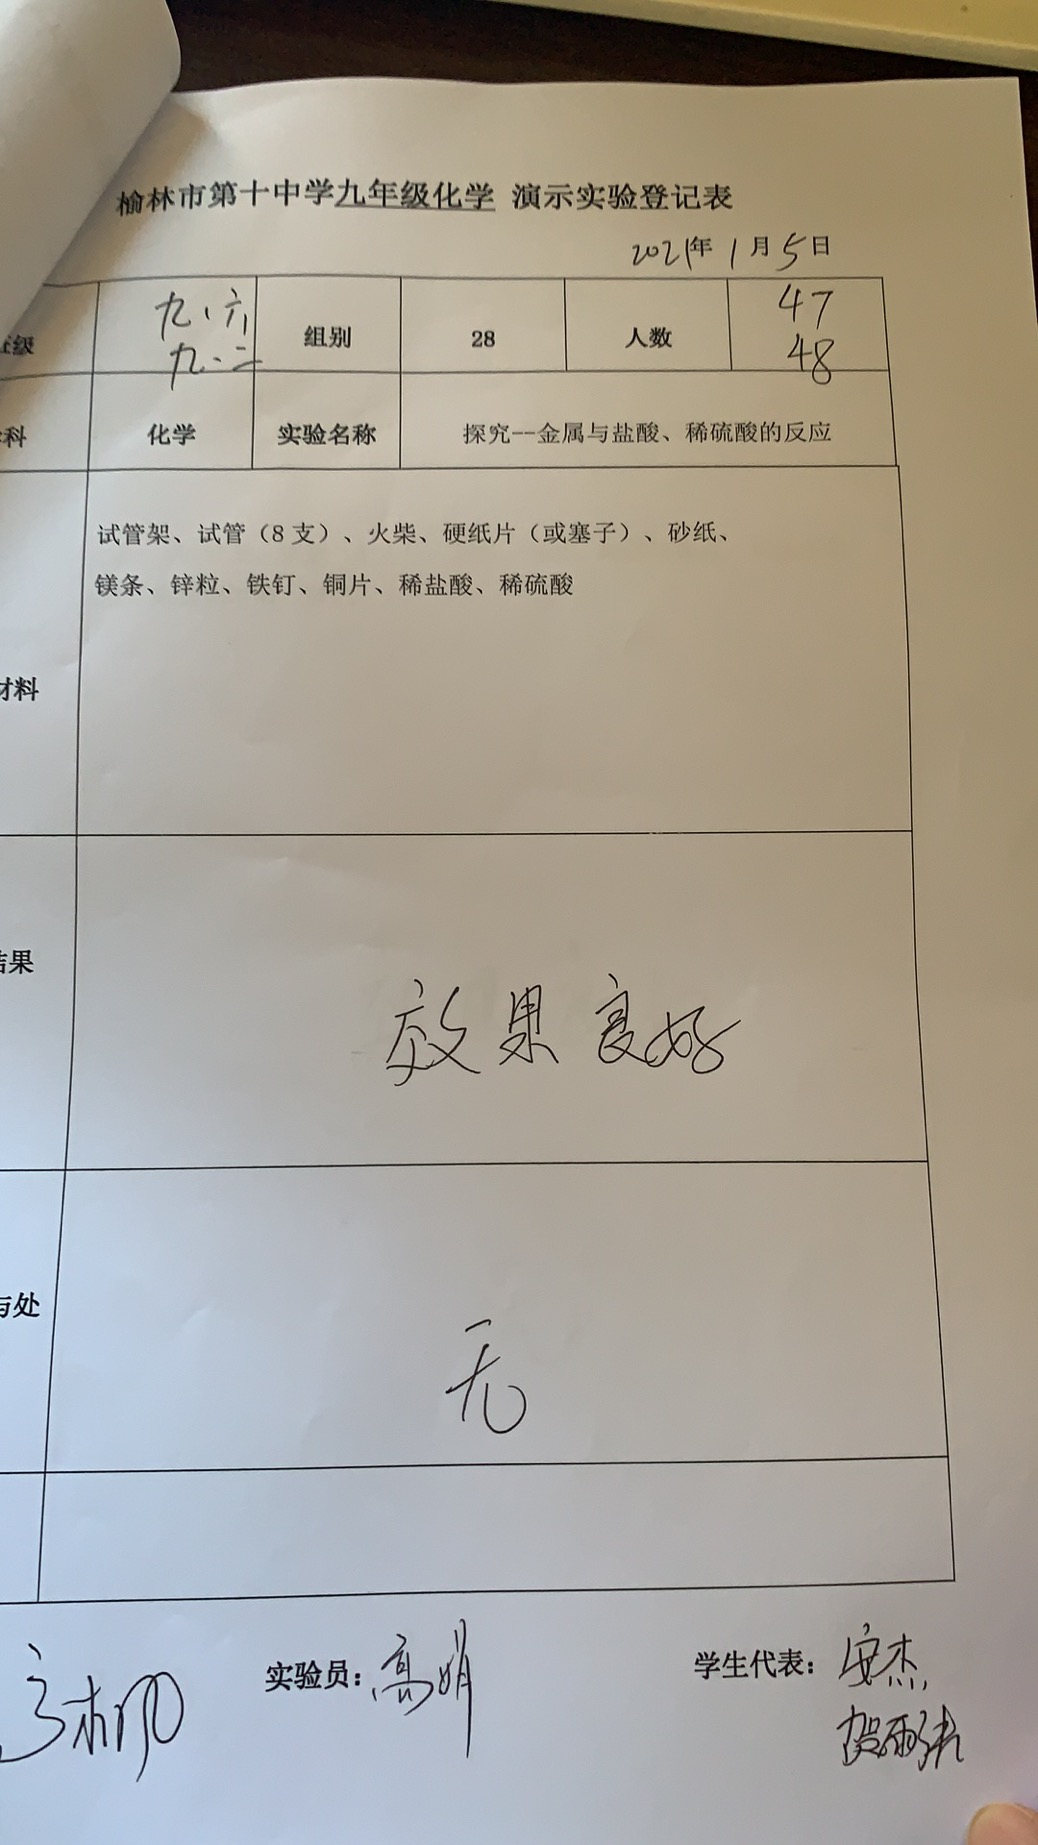 榆林市第十中学九年级化学 演示实验登记表
2021年 1 月 5 日
级 九.六 九.二 组别 28 人数 47 48
科 化学 实验名称 探究--金属与盐酸、稀硫酸的反应
试管架、试管（8 支）、火柴、硬纸片（或塞子）、砂纸、
镁条、锌粒、铁钉、铜片、稀盐酸、稀硫酸
材料
结果
效果良好
与处
无
实验员：高娟 学生代表：安杰